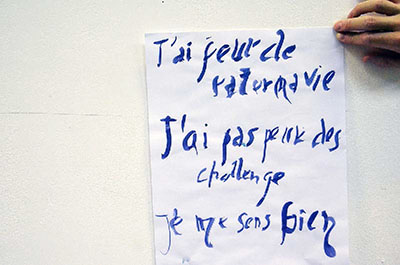 J'ai peur de
rater ma vie
J'ai pas peur des
challenge
je me sens bien